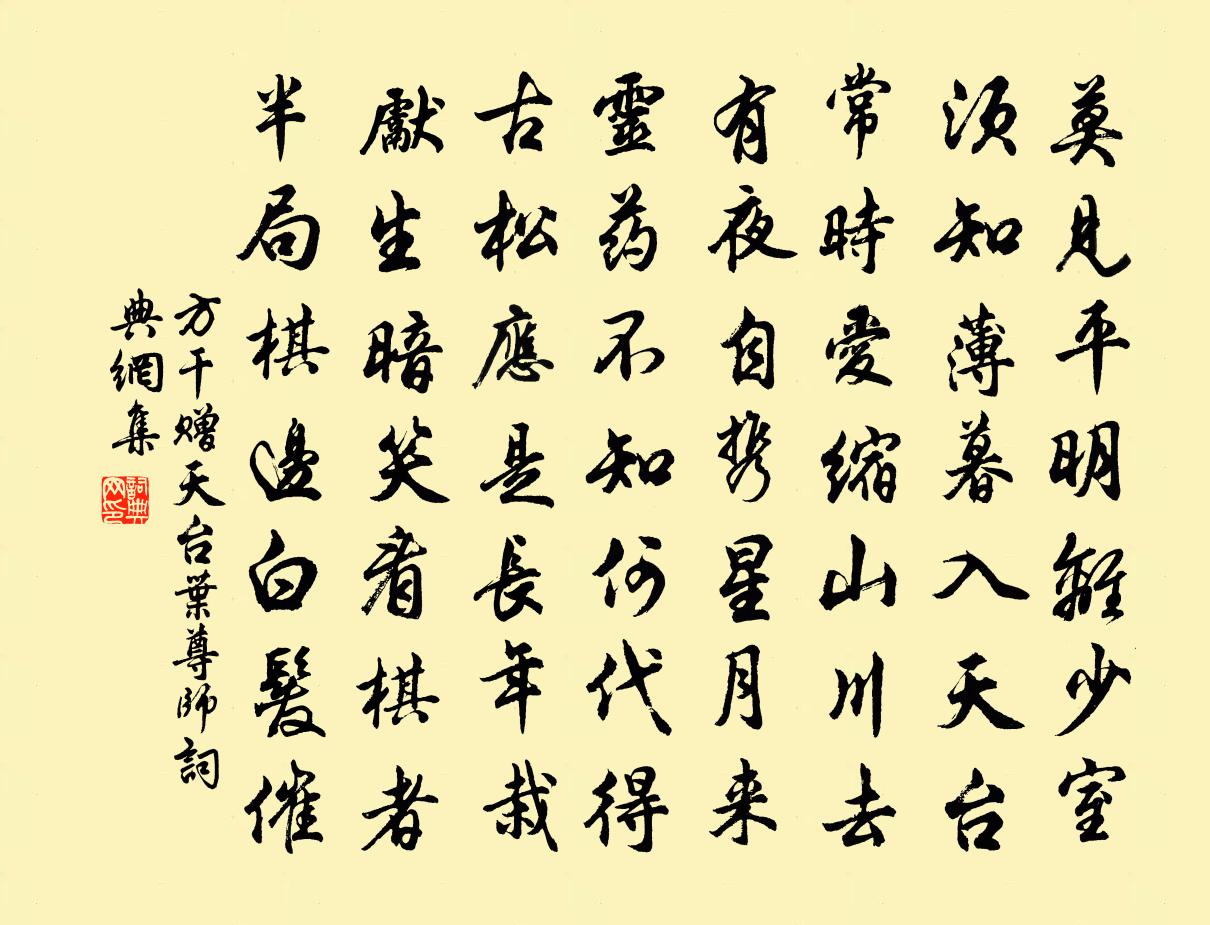 莫見平明離少室
須知薄暮入天台
常時愛縮山川去
有夜自携星月来
靈药不知何代得
古松應是長年栽
獻生暗笑看棋者
半局棋邊白髮催
方干赠天台葉尊師詞
典網集
詞典
网印